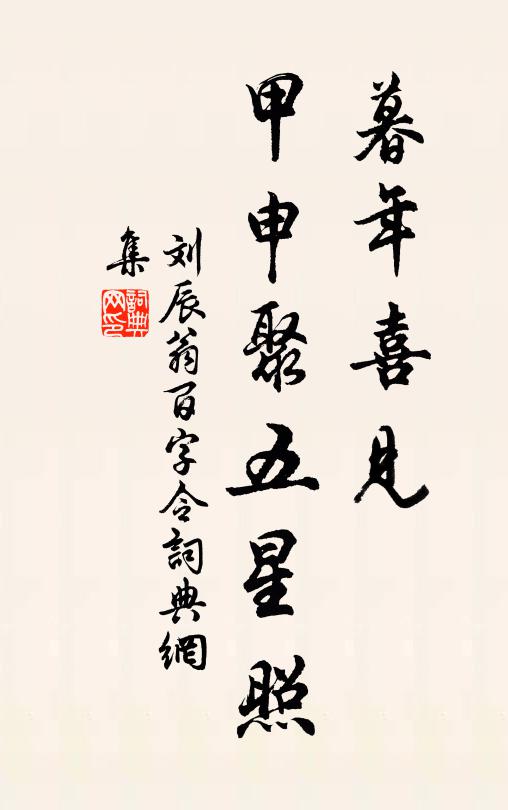 暮年喜見
甲申聚五星照
刘辰翁百字令詞典網
集
詞典
网印